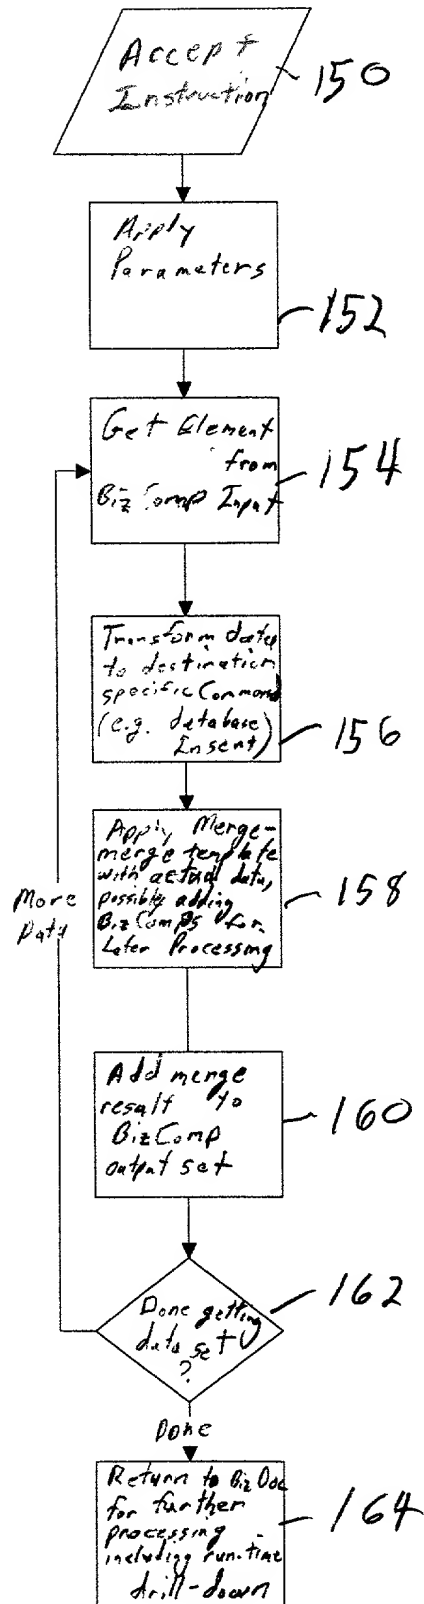 Accept
Instruction
150
Apply
Parameters
152
Get Element
from
BizComp Input
154
Transform data
to destination
specific Command
(e.g. database
Insert)
156
Apply Merge-
merge template
with actual data,
possibly adding
BizComps for
Later Processing
158
More
Data
Add merge
result to
BizComp
output set
160
Done getting
data set
?
162
Done
Return to BizDoc
for further
processing
including run-time
drill-down
164